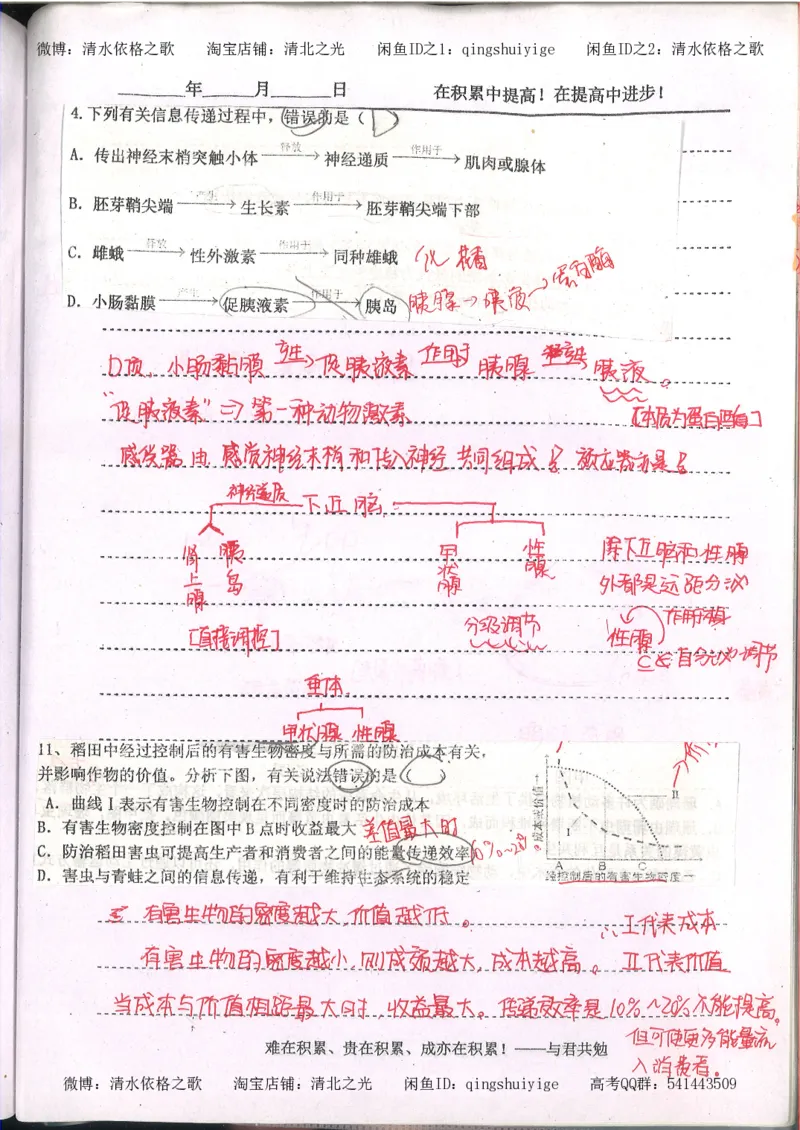 微博：清水依格之歌 淘宝店铺：清北之光 闲鱼ID之1：qingshuiyige 闲鱼ID之2：清水依格之歌
年 月 日 在积累中提高！在提高中进步！
4.下列有关信息传递过程中，错误的是（D）
A．传出神经末梢突触小体 释放→ 神经递质 作用于→ 肌肉或腺体
B．胚芽鞘尖端 产生→ 生长素 作用于→ 胚芽鞘尖端下部
C．雌蛾 释放→ 性外激素 作用于→ 同种雄蛾 化
D．小肠黏膜 产生→ 促胰液素 作用于→ 胰岛 胰腺→胰液→蛋白酶
D项，小肠黏膜 产生→促胰液素 作用于 胰腺 产生 胰液。
“促胰液素”⇒第一种动物激素 [本质为蛋白酶]
感受器由感觉神经末梢和传入神经共同组成
神经递质 下丘脑
肾上腺 胰岛 甲状腺 性腺 除下丘脑和性腺
外都是远距分泌
[直接调控] 分级调节 性腺 作用
自分泌调节
垂体
甲状腺 性腺
11、稻田中经过控制后的有害生物密度与所需的防治成本有关，
并影响作物的价值。分析下图，有关说法错误的是（C）
A．曲线Ⅰ表示有害生物控制在不同密度时的防治成本
B．有害生物密度控制在图中B点时收益最大 差值最大时
C．防治稻田害虫可提高生产者和消费者之间的能量传递效率 10%~20%
D．害虫与青蛙之间的信息传递，有利于维持生态系统的稳定
成本或价值→
Ⅰ Ⅱ
A B C
经控制后的有害生物密度→
有害生物的密度越大，价值越低。 ∴Ⅰ代表成本
有害生物的密度越小，则成本越高。 Ⅱ代表价值
当成本与价值相距最大时，收益最大。传递效率是10%~20%不能提高。
但可使更多能量流
入消费者。
难在积累、贵在积累、成亦在积累！——与君共勉
微博：清水依格之歌 淘宝店铺：清北之光 闲鱼ID：qingshuiyige 高考QQ群：541443509